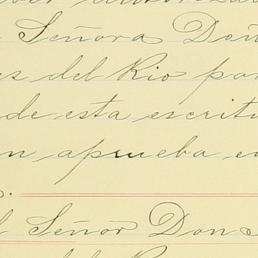 Señora Doñ
es del Rio par
de esta escritu
n aprueba en
l Señor Don